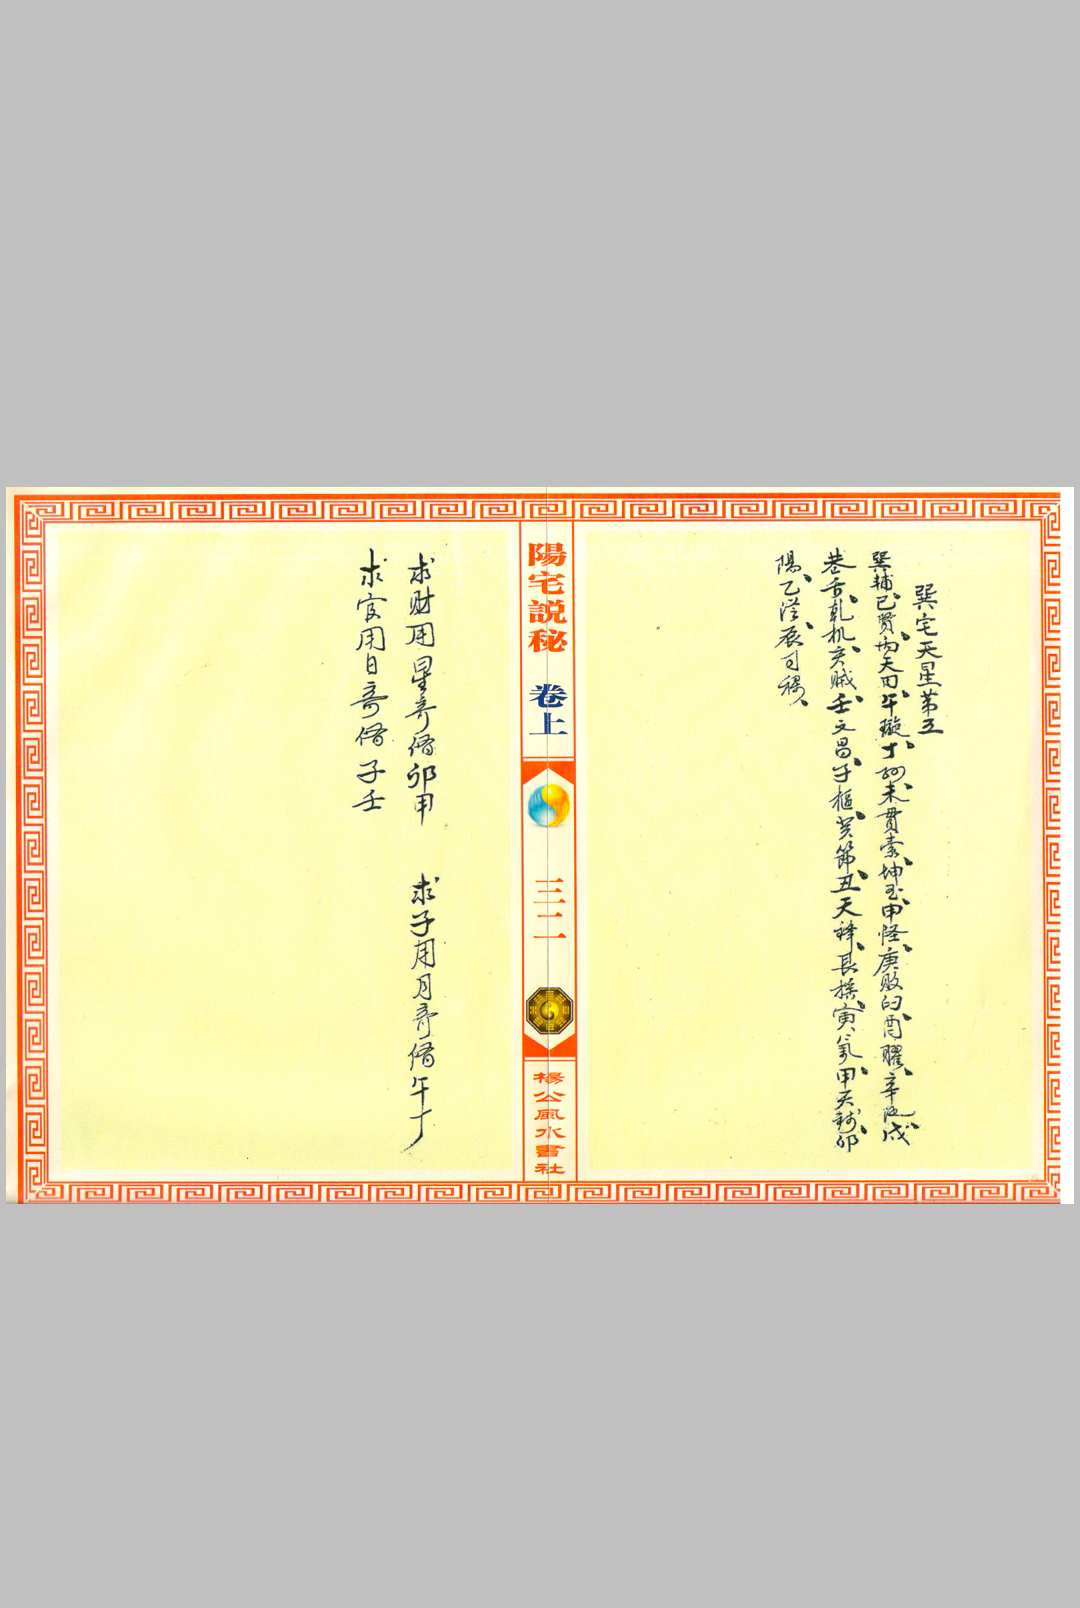 巽宅天星第五
巽輔巳賢丙天田午璇丁䤼未貫索坤玉申怪庚敗臼酉耀辛厄戌
巷舌乾机亥賊壬文昌子樞癸節丑天棓艮搖寅氣甲天錢卯
陽乙淫辰司祿
陽宅説秘
卷上
三二二
楊公風水書社
求財用星奇脩卯甲 求子用月奇脩午丁
求官用日奇脩子壬